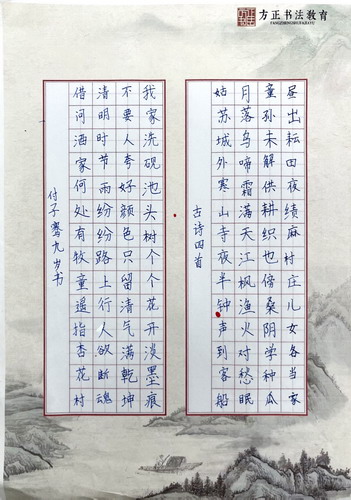 方正书法教育
昼出耘田夜绩麻村庄儿女各当家
童孙未解供耕织也傍桑阴学种瓜
月落乌啼霜满天江枫渔火对愁眠
姑苏城外寒山寺夜半钟声到客船
古诗四首
我家洗砚池头树个个花开淡墨痕
不要人夸好颜色只留清气满乾坤
清明时节雨纷纷路上行人欲断魂
借问酒家何处有牧童遥指杏花村
付子骞九岁书